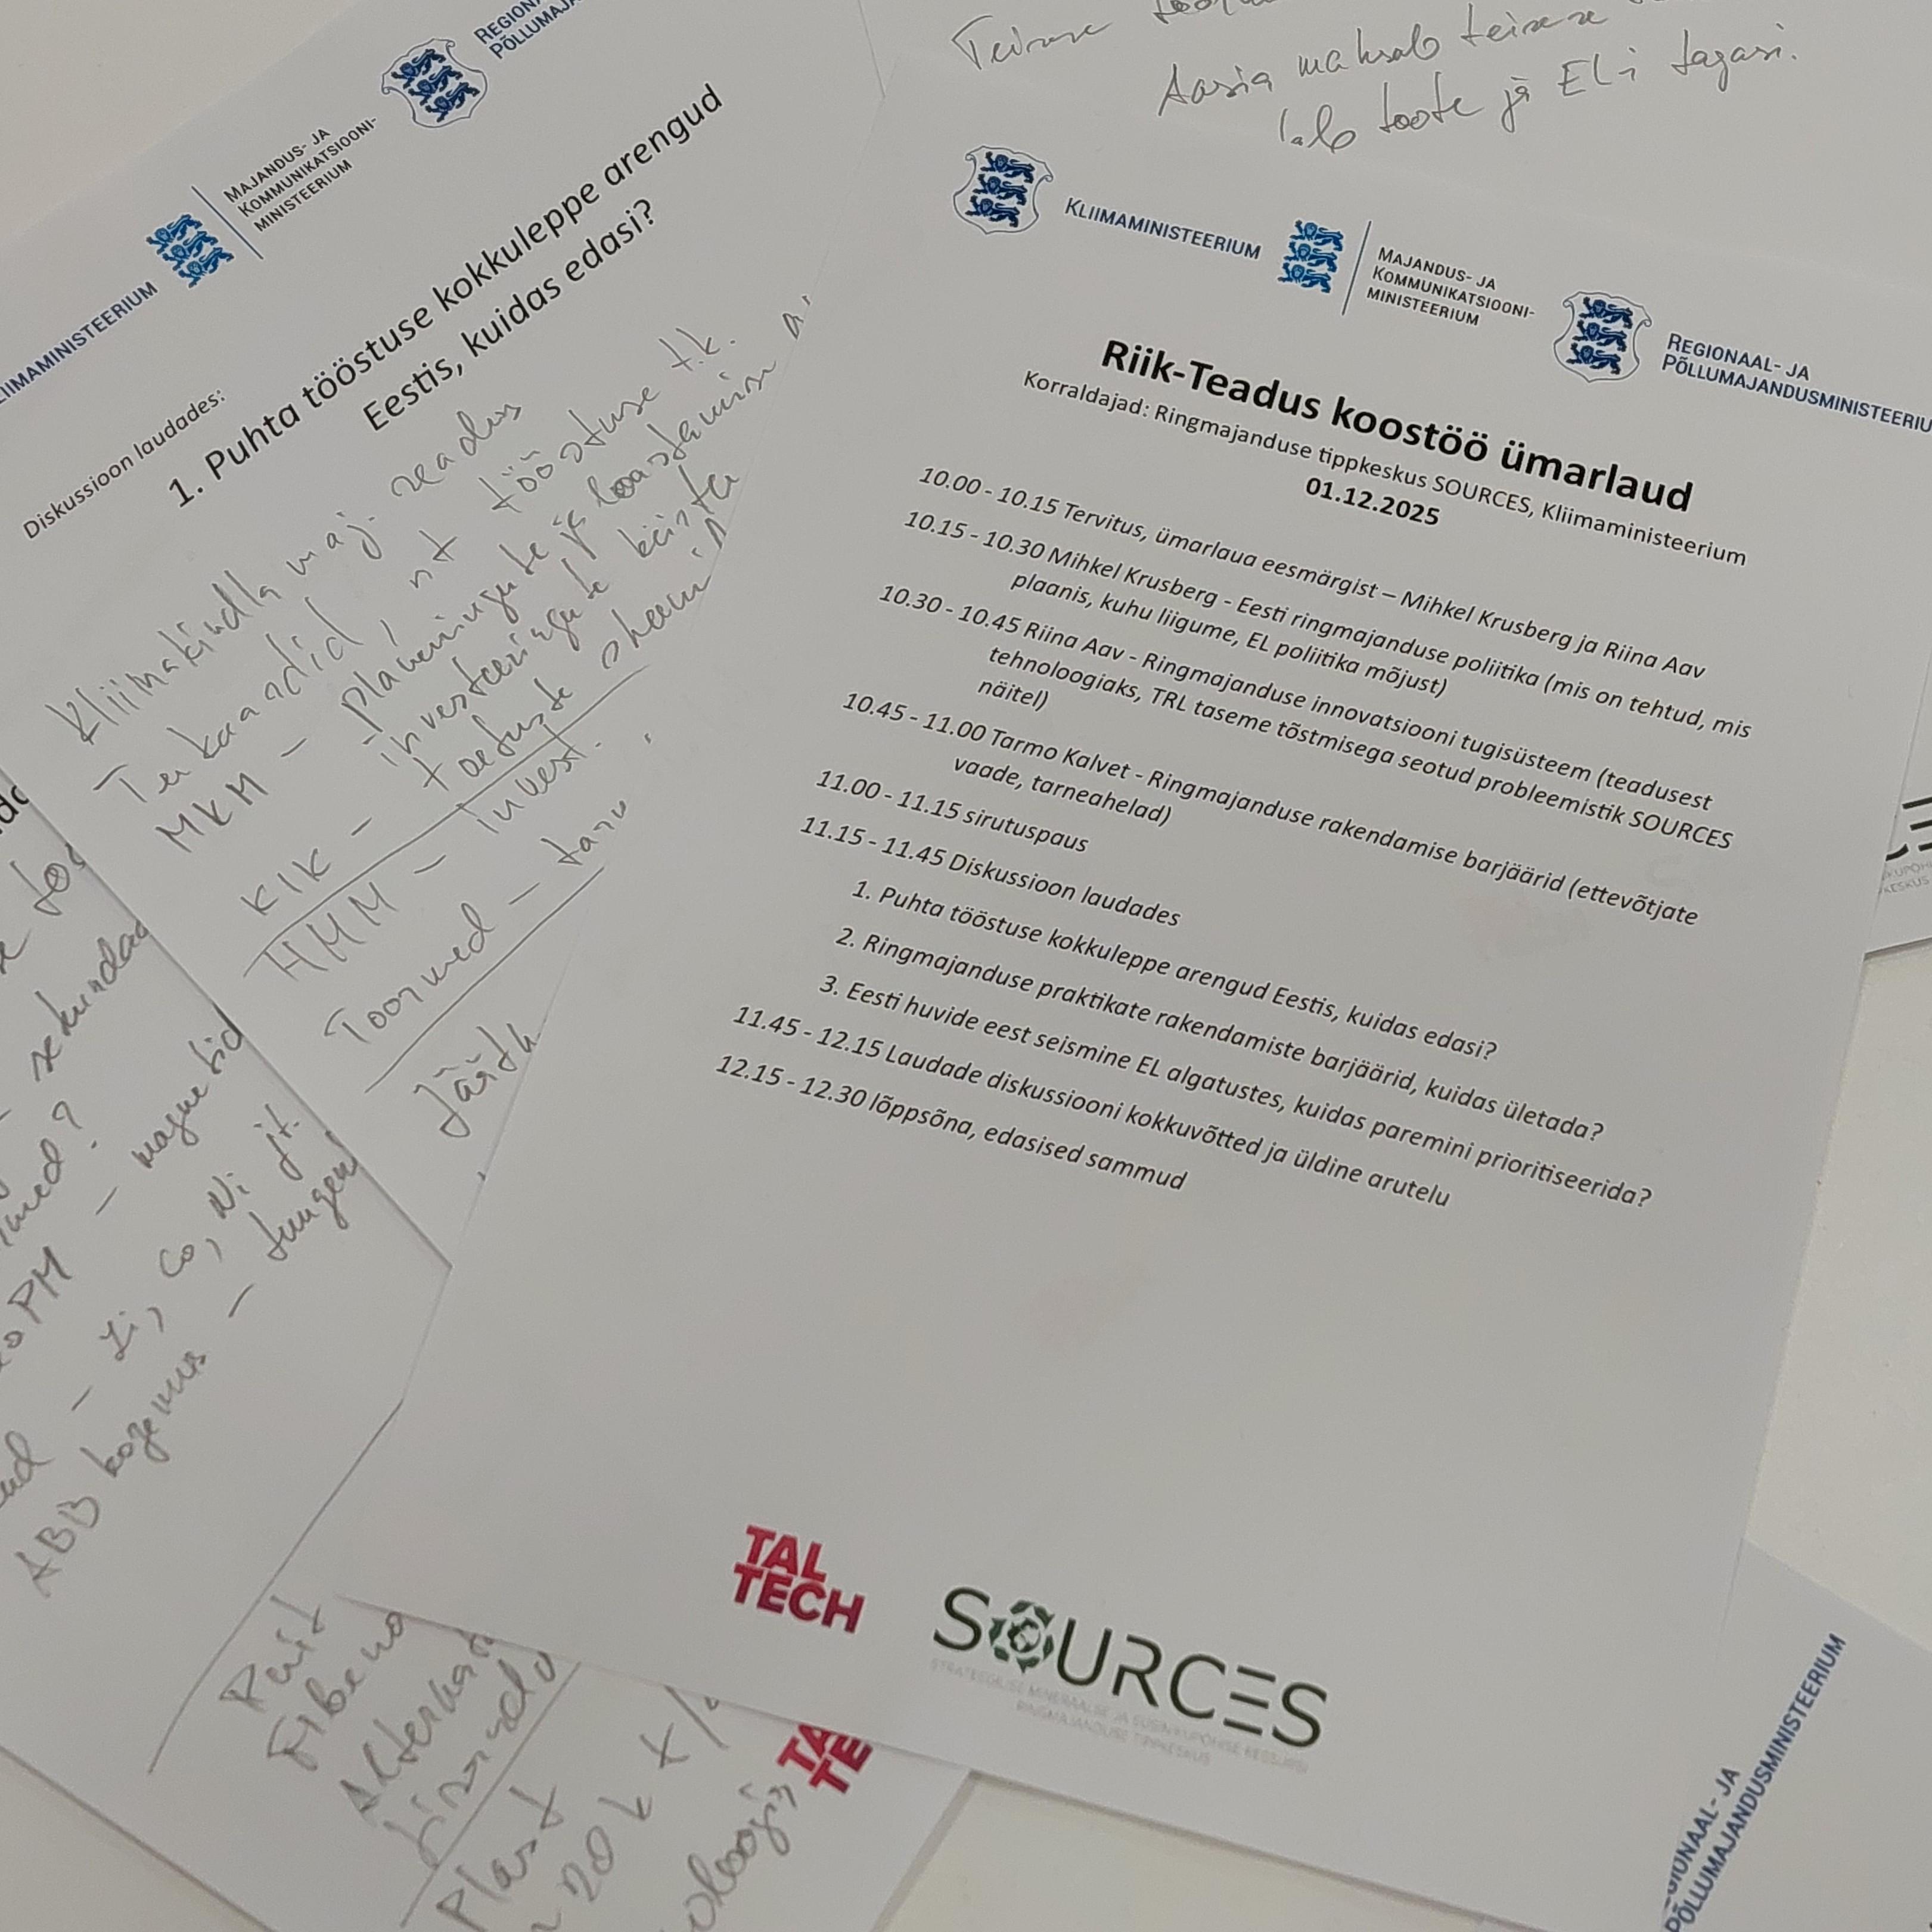 KLIIMAMINISTEERIUM
MAJANDUS- JA
KOMMUNIKATSIOONI-
MINISTEERIUM
REGIONAAL- JA
PÕLLUMAJANDUSMINISTEERIU
Riik-Teadus koostöö ümarlaud
Korraldajad: Ringmajanduse tippkeskus SOURCES, Kliimaministeerium
01.12.2025
10.00 - 10.15 Tervitus, ümarlaua eesmärgist – Mihkel Krusberg ja Riina Aav
10.15 - 10.30 Mihkel Krusberg - Eesti ringmajanduse poliitika (mis on tehtud, mis
plaanis, kuhu liigume, EL poliitika mõjust)
10.30 - 10.45 Riina Aav - Ringmajanduse innovatsiooni tugisüsteem (teadusest
tehnoloogiaks, TRL taseme tõstmisega seotud probleemistik SOURCES
näitel)
10.45 - 11.00 Tarmo Kalvet - Ringmajanduse rakendamise barjäärid (ettevõtjate
vaade, tarneahelad)
11.00 - 11.15 sirutuspaus
11.15 - 11.45 Diskussioon laudades
1. Puhta tööstuse kokkuleppe arengud Eestis, kuidas edasi?
2. Ringmajanduse praktikate rakendamiste barjäärid, kuidas ületada?
3. Eesti huvide eest seismine EL algatustes, kuidas paremini prioritiseerida?
11.45 - 12.15 Laudade diskussiooni kokkuvõtted ja üldine arutelu
12.15 - 12.30 lõppsõna, edasised sammud
TAL
TECH
SOURCES
STRATEEGILISE MINERAALSE JA SÜSINIKUPÕHISE RESSURSI
RINGMAJANDUSE TIPPKESKUS
IIMAMINISTEERIUM
MAJANDUS- JA
KOMMUNIKATSIOONI-
MINISTEERIUM
REGION
PÕLLUMAJA
Diskussioon laudades:
1. Puhta tööstuse kokkuleppe arengud
Eestis, kuidas edasi?
Kliimakindla maj. seadus
Teekaardid, nt tööstuse t.k.
MKM – planeeringute ja loastamise
investeeringute kiirtee
KIK – toetuste skeemi
HMM – Invest.
Toormed –
Aasia maksab teisese
toote ja EL-i tagasi.
– magnetid
– Li, Co, Ni jt.
ABB kogemus –
Puit
Plast
20 k t/
TA
TE
REGIONAAL- JA
PÕLLUMAJANDUSMINISTEERIUM